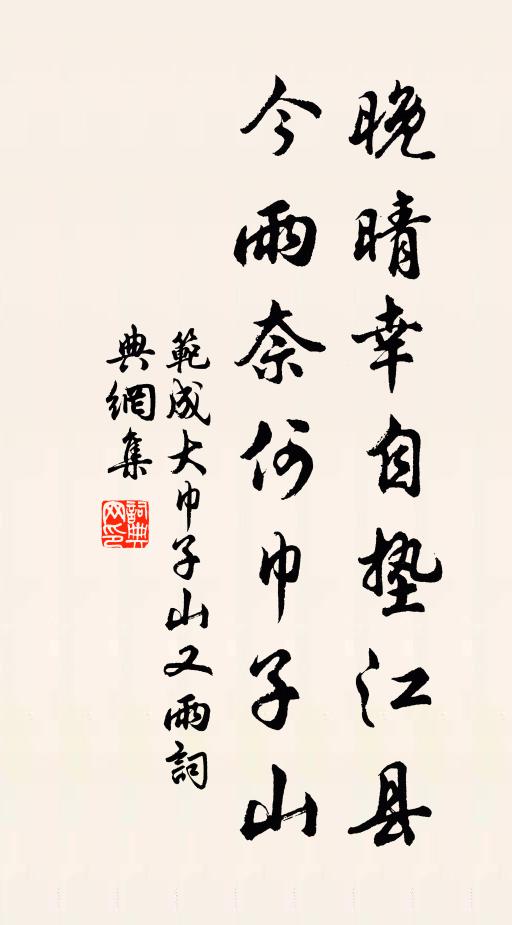 晚晴幸自垫江县
今雨奈何巾子山
範成大巾子山又雨詞
典網集
詞典网印